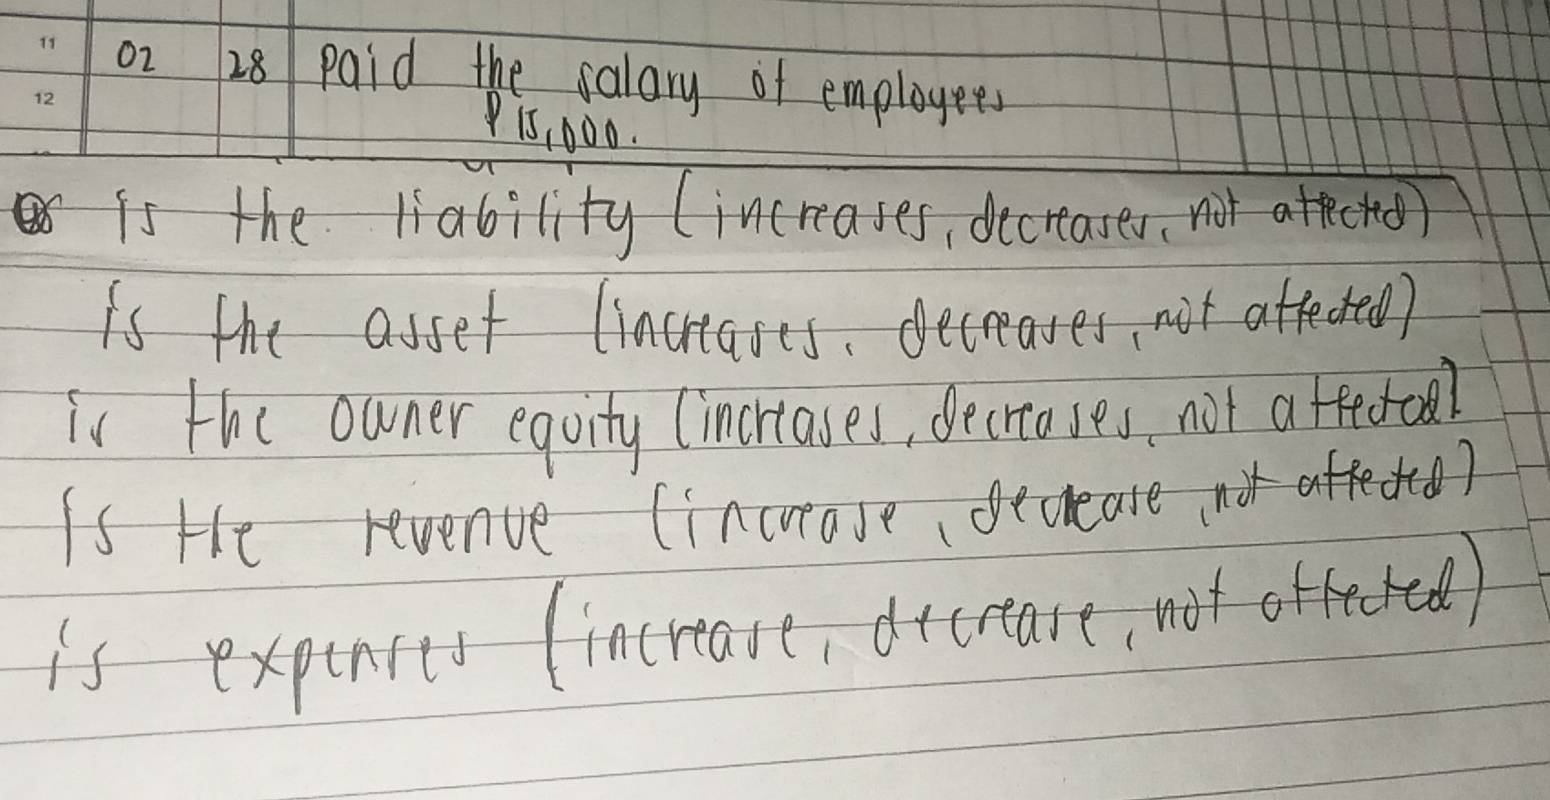 11 02 28 Paid the salary of employees
12 ₱ 15,000.
is the liability (increases, decreases, not affected)
is the asset (increases, decreases, not affected)
is the owner equity (increases, decreases, not affected)
is the revenue (increase, decrease, not affected)
is expenses (increase, decrease, not affected)